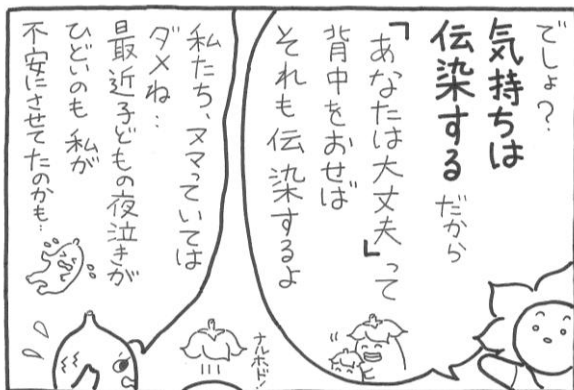 でしょ?
気持ちは
伝染する だから
「あなたは大丈夫」って
背中をおせば
それも伝染するよ
ナルホド!
私たち、ヌマっていては
ダメね…
最近子どもの夜泣きが
ひどいのも 私が
不安にさせてたのかも…